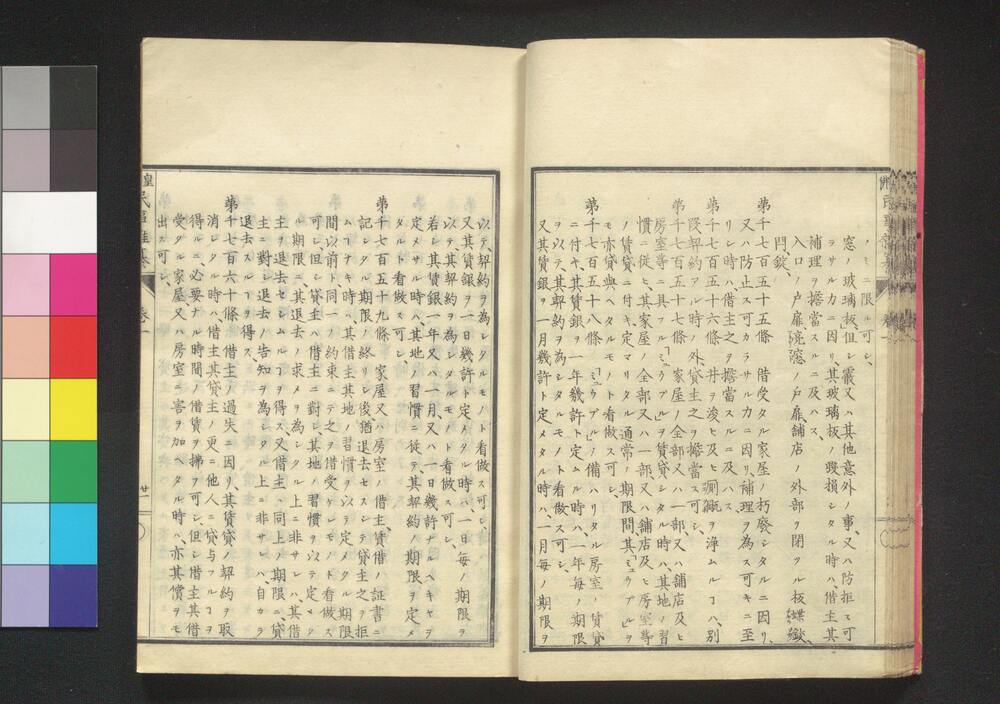 ノミニ限ル可シ、
窓ノ玻璃板、但シ霰又ハ其他意外ノ事、又ハ防拒ス可
ラサル力ニ因リ、其玻璃板ノ毀損シタル時ハ、借主其
補理ヲ擔當スルニ及ハス、
入口ノ戸扉、窓ノ戸扉、舗店ノ外部ヲ閉ツル板、蝶鉸、
閂、錠、
第千七百五十五條 借受タル家屋ノ朽廢シタルニ因リ、
又ハ防止ス可カラサル力ニ因リ、補理ヲ為ス可キニ至
リシ時ハ、借主之ヲ擔當スルニ及ハス、
第千七百五十六條 井ヲ浚ヒ及ヒ溷厠ヲ浄ムルヿハ、別
段ノ契約アル時ノ外、貸主之ヲ擔當ス可シ、
第千七百五十七條 家屋ノ全部又ハ一部、又ハ舗店及ヒ
房室等ニ具フル「ミュウブル」ヲ賃貸シタル時ハ、其地ノ習
慣ニ従ヒ、其家屋ノ全部又ハ一部又ハ舗店及ヒ房室等
ノ賃貸ニ付キ、定マリタル通常ノ期限間、其「ミュウブル」ヲ
モ亦貸與ヘタルモノト看做ス可シ、
第千七百五十八條 「ミュウブル」ノ備ハリタル房室ノ賃貸
ニ付キ、其賃銀ヲ一年幾許ト定ムル時ハ、一年毎ノ期限
ヲ以テ、其契約ヲ為シタルモノト看做ス可シ、
又其賃銀ヲ一月幾許ト定メタル時ハ、一月毎ノ期限ヲ
以テ、契約ヲ為シタルモノト看做ス可シ、
又其賃銀ヲ一日幾許ト定メタル時ハ、一日毎ノ期限ヲ
以テ、其契約ヲ為シタルモノト看做ス可シ、
若シ其賃銀一年又ハ一月、又ハ一日幾許ナルヘキヤヲ
定メサル時ハ、其地ノ習慣ニ従テ、其契約ノ期限ヲ定メ
タルト看做ス可シ、
第千七百五十九條 家屋又ハ房室ノ借主、賃借ノ証書ニ
記シタル期限ノ終リシ後、猶退去セスシテ貸主之ヲ拒
ムヿナキ時ハ、其借主其地ノ習慣ヲ以テ定メタル期限
間、以前ト同一ノ約束ニテ之ヲ借受ケシモノト看做ス
可シ、但シ貸主ハ借主ニ對シ、其地ノ習慣ヲ以テ定マリ
シ期限ニ、其退去ノ求メヲ為シタル上ニ非サレハ、其借
主ヲ退去セシムルヿヲ得ス、又借主ハ同上ノ期限ニ、貸
主ニ對シ退去ノ告知ヲ為シタル上ニ非サレハ、自カラ
退去スルヿヲ得ス、
第千七百六十條 借主ノ過失ニ因リ、其賃貸ノ契約ヲ取
消シタル時ハ、借主其貸主ノ更ニ他人ニ貸与フルヿヲ
得ルニ必要ナル時間ノ借賃ヲ拂フ可シ、但シ借主其借
受タル家屋又ハ房室ニ害ヲ加ヘタル時ハ、亦其償ヲモ
出ス可シ、
卷一
廿一